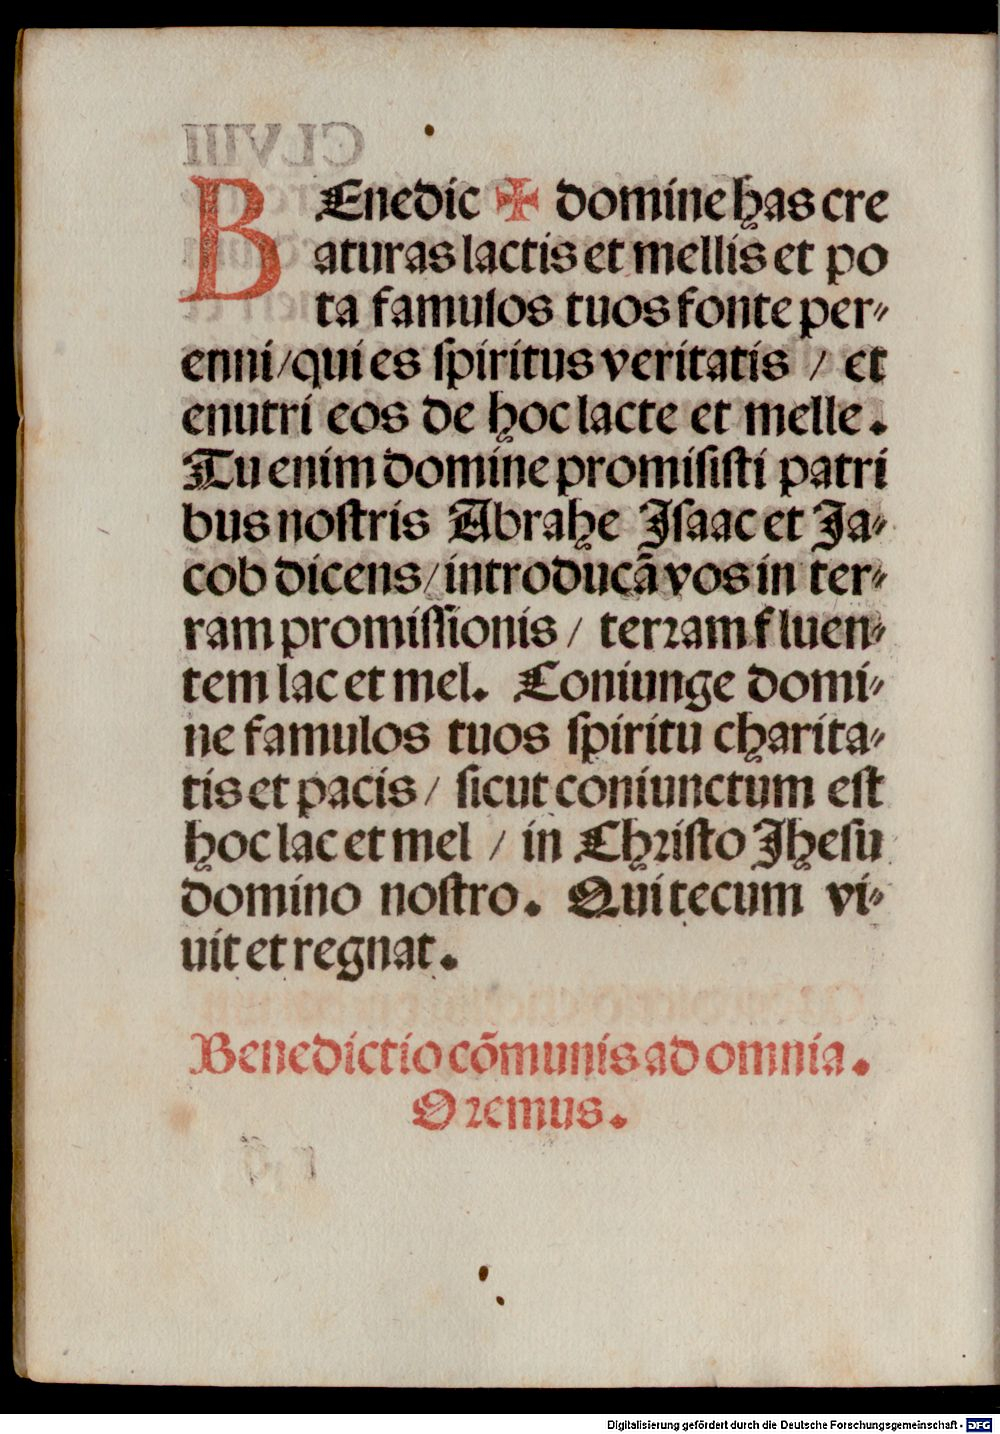 BEnedic ✠ domine has cre
aturas lactis et mellis et po
ta famulos tuos fonte per⸗
enni/qui es ſpiritus veritatis / et
enutri eos de hoc lacte et melle.
Tu enim domine promiſiſti patri
bus noſtris Abrahe Iſaac et Ja⸗
cob dicens/introducã vos in ter⸗
ram promiſſionis / terꝛam fluen⸗
tem lac et mel. Coniunge domi⸗
ne famulos tuos ſpiritu charita⸗
tis et pacis/ ſicut coniunctum eſt
hoc lac et mel / in Chꝛiſto Jheſu
domino noſtro. Qui tecum vi⸗
uit et regnat.
Benedictio cõmunis ad omnia.
Oꝛemus.
Digitalisierung gefördert durch die Deutsche Forschungsgemeinschaft - DFG